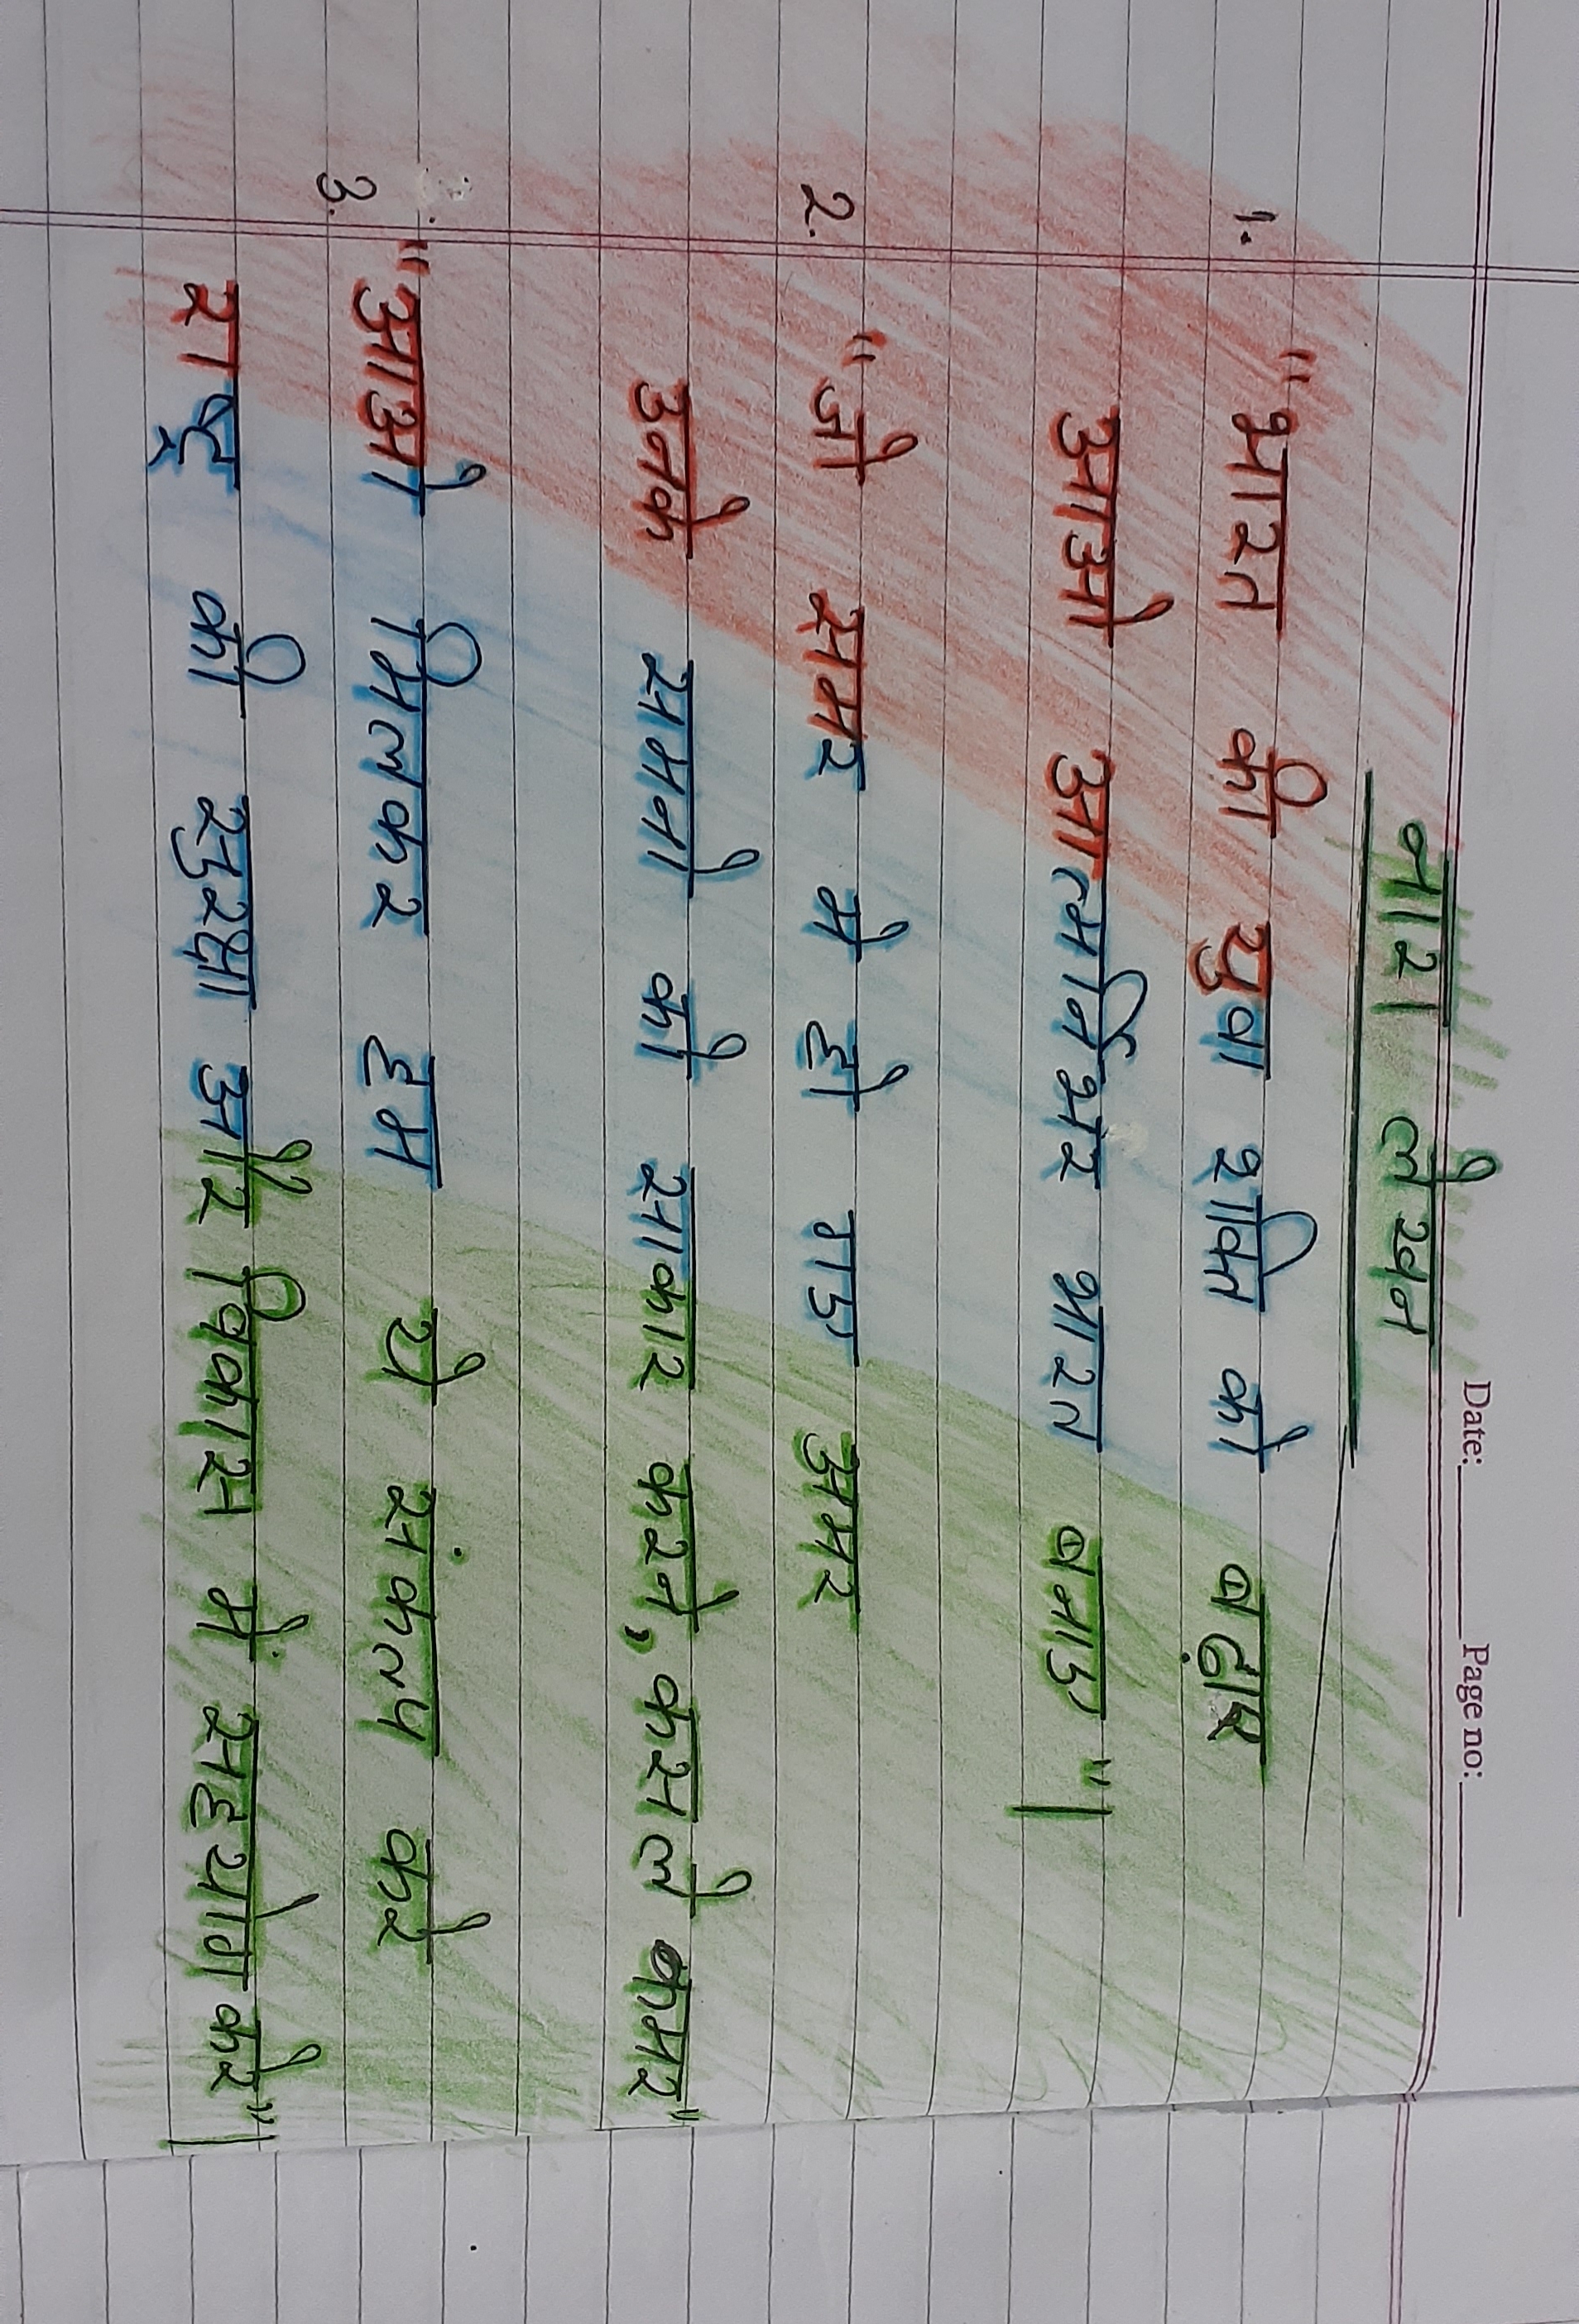 Date: Page no:
नारा लेखन
1. "भारत की युवा शक्ति को बढ़ाए
आओ आत्मनिर्भर भारत बनाए"।
2. "जो समर मे हो गए अमर
उनके सपनो को साकार करने, कसले कमर"
3. "आओ मिलकर हम ये संकल्प करे
राष्ट्र की सुरक्षा और विकास में सहयोग करे"।